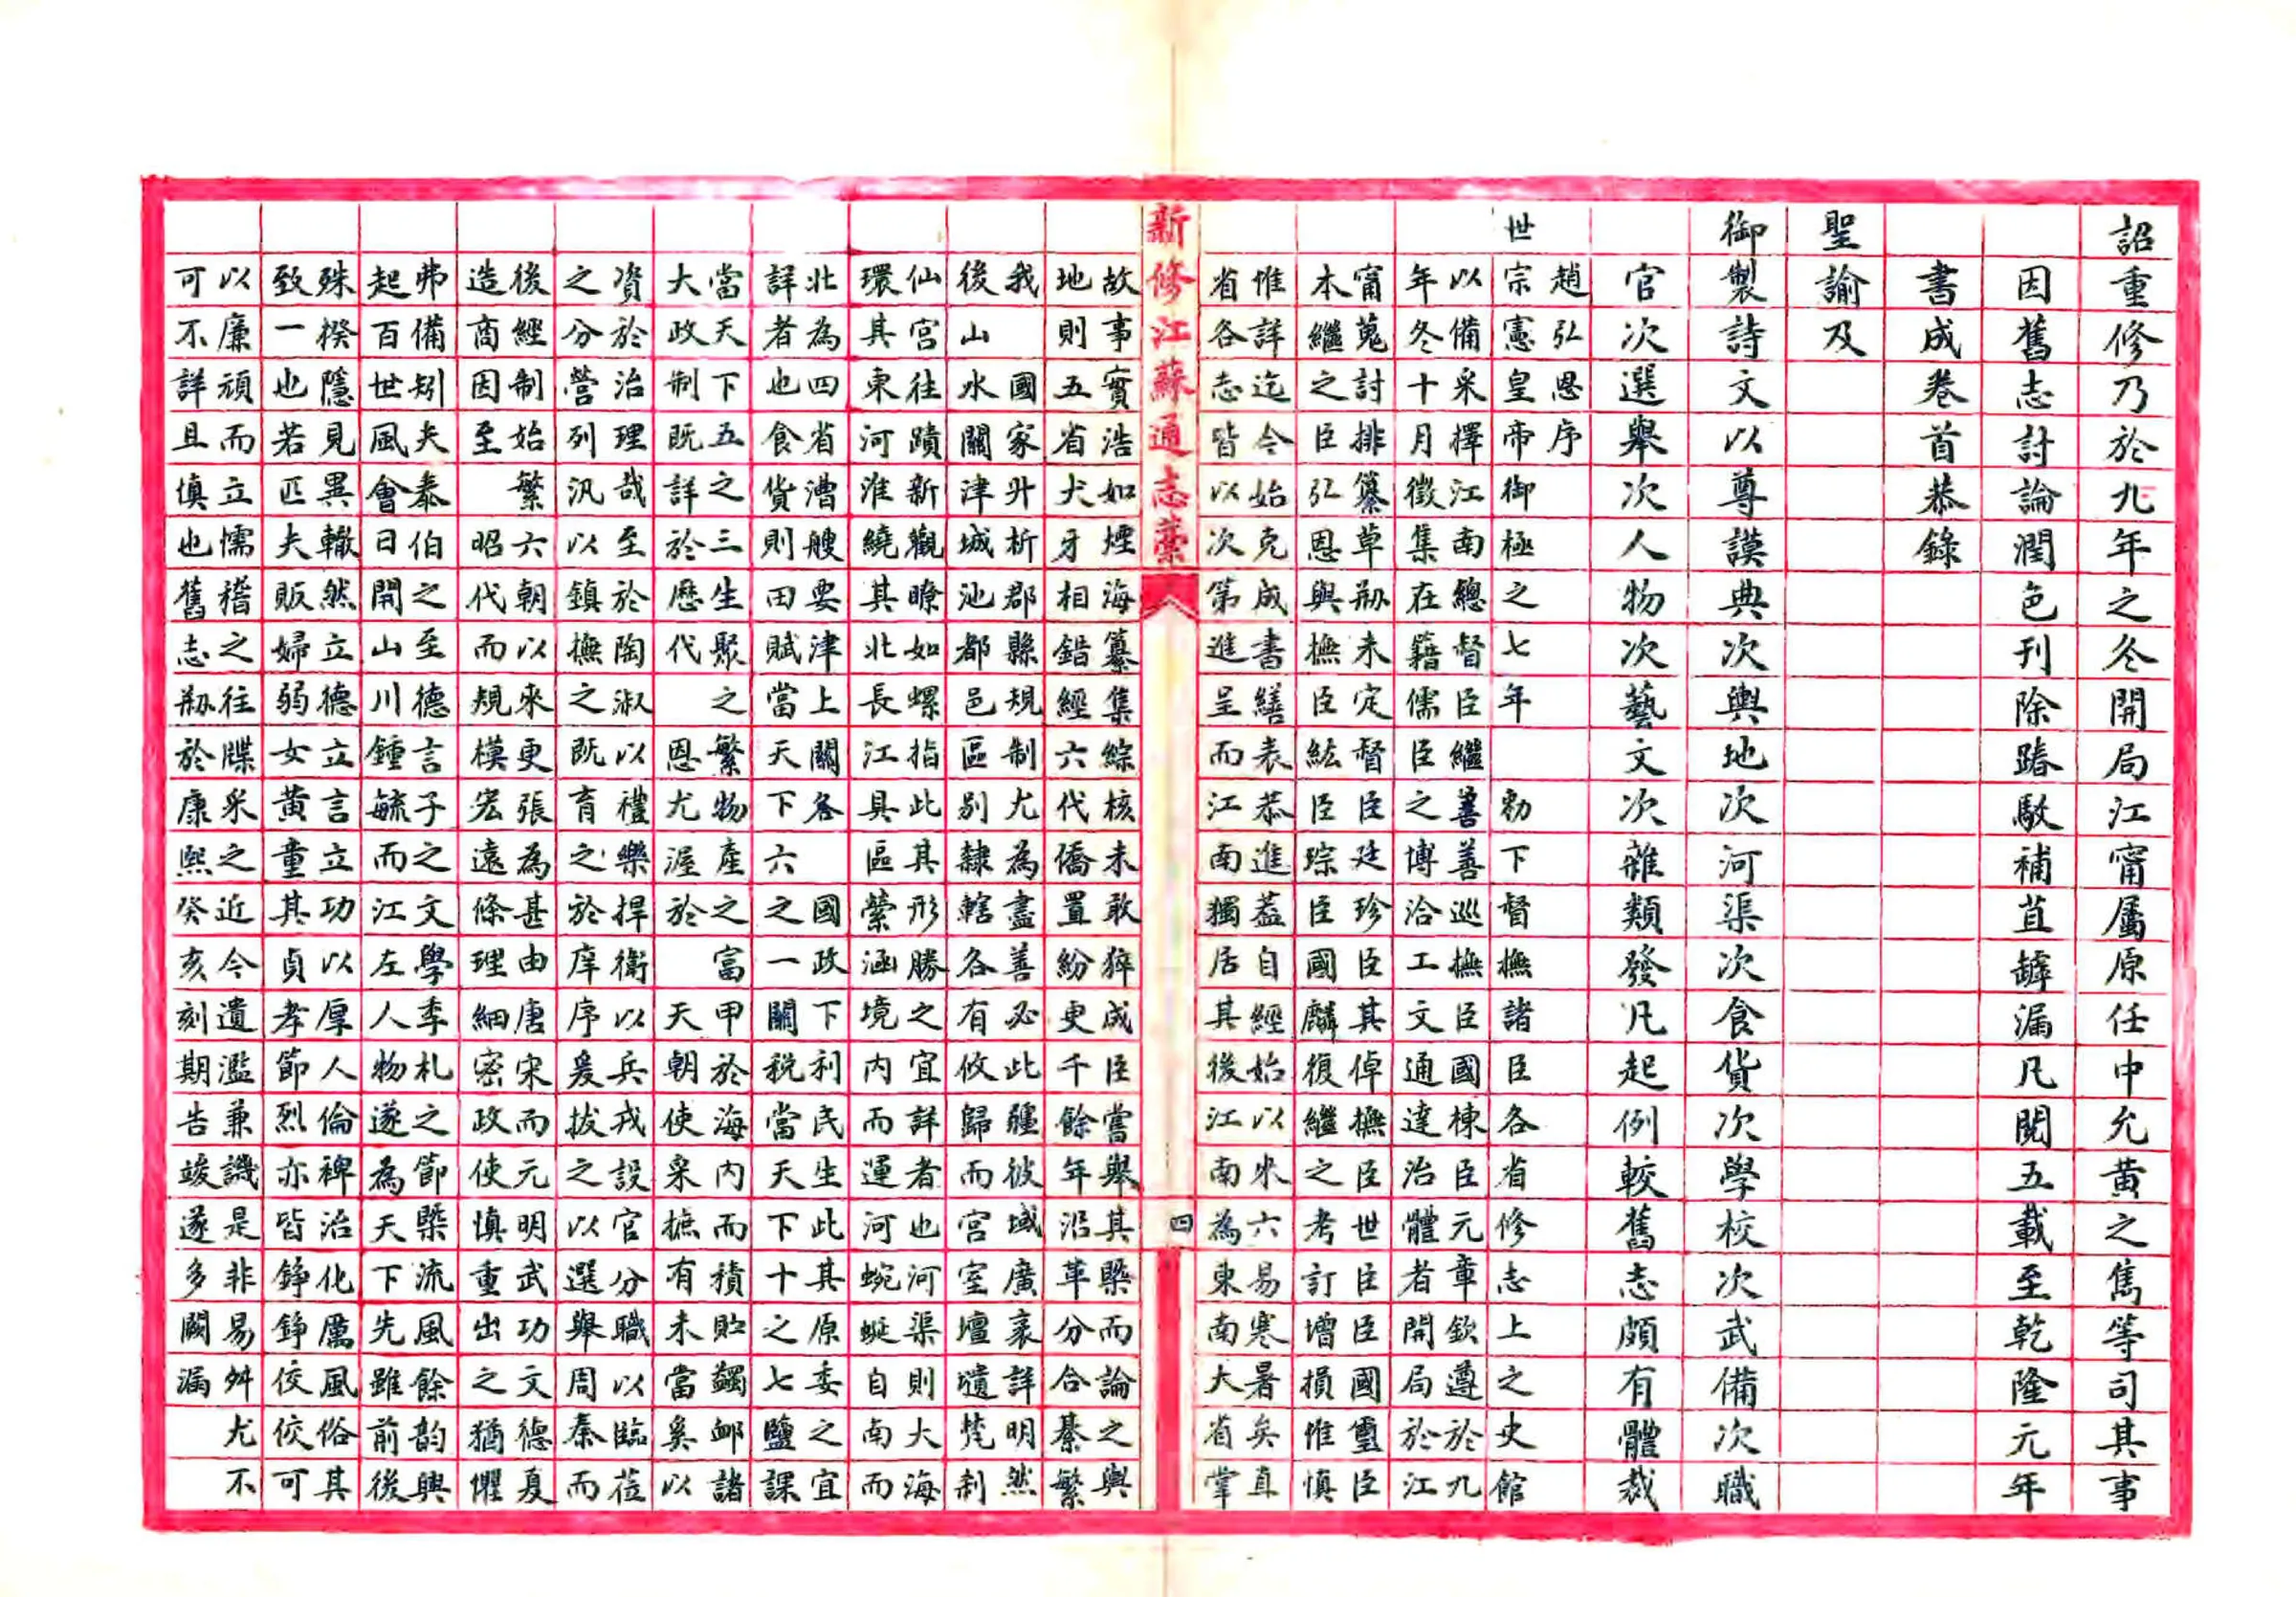 詔重修乃於九年之冬開局江甯屬原任中允黃之雋等司其事
因舊志討論潤色刊除踳駁補苴罅漏凡閱五載至乾隆元年
書成卷首恭錄
聖諭及
御製詩文以尊謨典次輿地次河渠次食貨次學校次武備次職
官次選舉次人物次藝文次雜類發凡起例較舊志頗有體裁
趙弘恩序
世宗憲皇帝御極之七年 勅下督撫諸臣各省修志上之史館
以備采擇江南總督臣繼善善巡撫臣國棟臣元章欽遵於九
年冬十月徵集在籍儒臣之博洽工文通達治體者開局於江
甯蒐討排纂草刱未定督臣廷珍臣其倬撫臣世臣臣國璽臣
本繼之臣弘恩與撫臣紘臣琮臣國麟復繼之考訂增損惟慎
惟詳迄今始克成書繕表恭進蓋自經始以來六易寒暑矣直
省各志皆以次第進呈而江南獨居其後江南為東南大省掌
新修江蘇通志藁
四
故事實浩如煙海纂集綜核未敢猝成臣嘗舉其槩而論之輿
地則五省犬牙相錯經六代僑置紛更千餘年沿革分合綦繁
我 國家升析郡縣規制尤為盡善必此疆彼域廣袤詳明然
後山水關津城池都邑區別隸轄各有攸歸而宮室壇壝梵剎
仙宮往蹟新觀瞭如螺指此其形勝之宜詳者也河渠則大海
環其東河淮繞其北長江具區縈涵境內而運河蜿蜒自南而
北為四省漕艘要津上關各 國政下利民生此其原委之宜
詳者也食貨則田賦當天下六之一關稅當天下十之七鹽課
當天下五之三生聚之繁物產之富甲於海內而積貯蠲卹諸
大政制既詳於歷代 恩尤渥於 天朝使采摭有未當奚以
資於治理哉至於陶淑以禮樂捍衛以兵戎設官分職以臨莅
之分營列汛以鎮撫之既育之於庠序爰拔之以選舉周秦而
後經制始繁六朝以來更張為甚由唐宋而元明武功文德夏
造商因至 昭代而規模宏遠條理細密政使慎重出之猶懼
弗備矧夫泰伯之至德言子之文學季札之節槩流風餘韵興
起百世風會日開山川鍾毓而江左人物遂為天下先雖前後
殊揆隱見異轍然立德立言立功以厚人倫裨治化厲風俗其
致一也若匹夫販婦弱女黃童其貞孝節烈亦皆錚錚佼佼可
以廉頑而立懦稽之往牒采之近今遺濫兼譏是非易舛尤不
可不詳且慎也舊志刱於康熙癸亥刻期告竣遂多闕漏